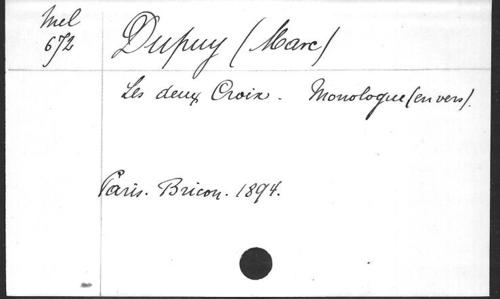 Mel
672
Dupuy (Marc)
Les deux Croix. Monologue (en vers).
Paris. Bricon. 1894.